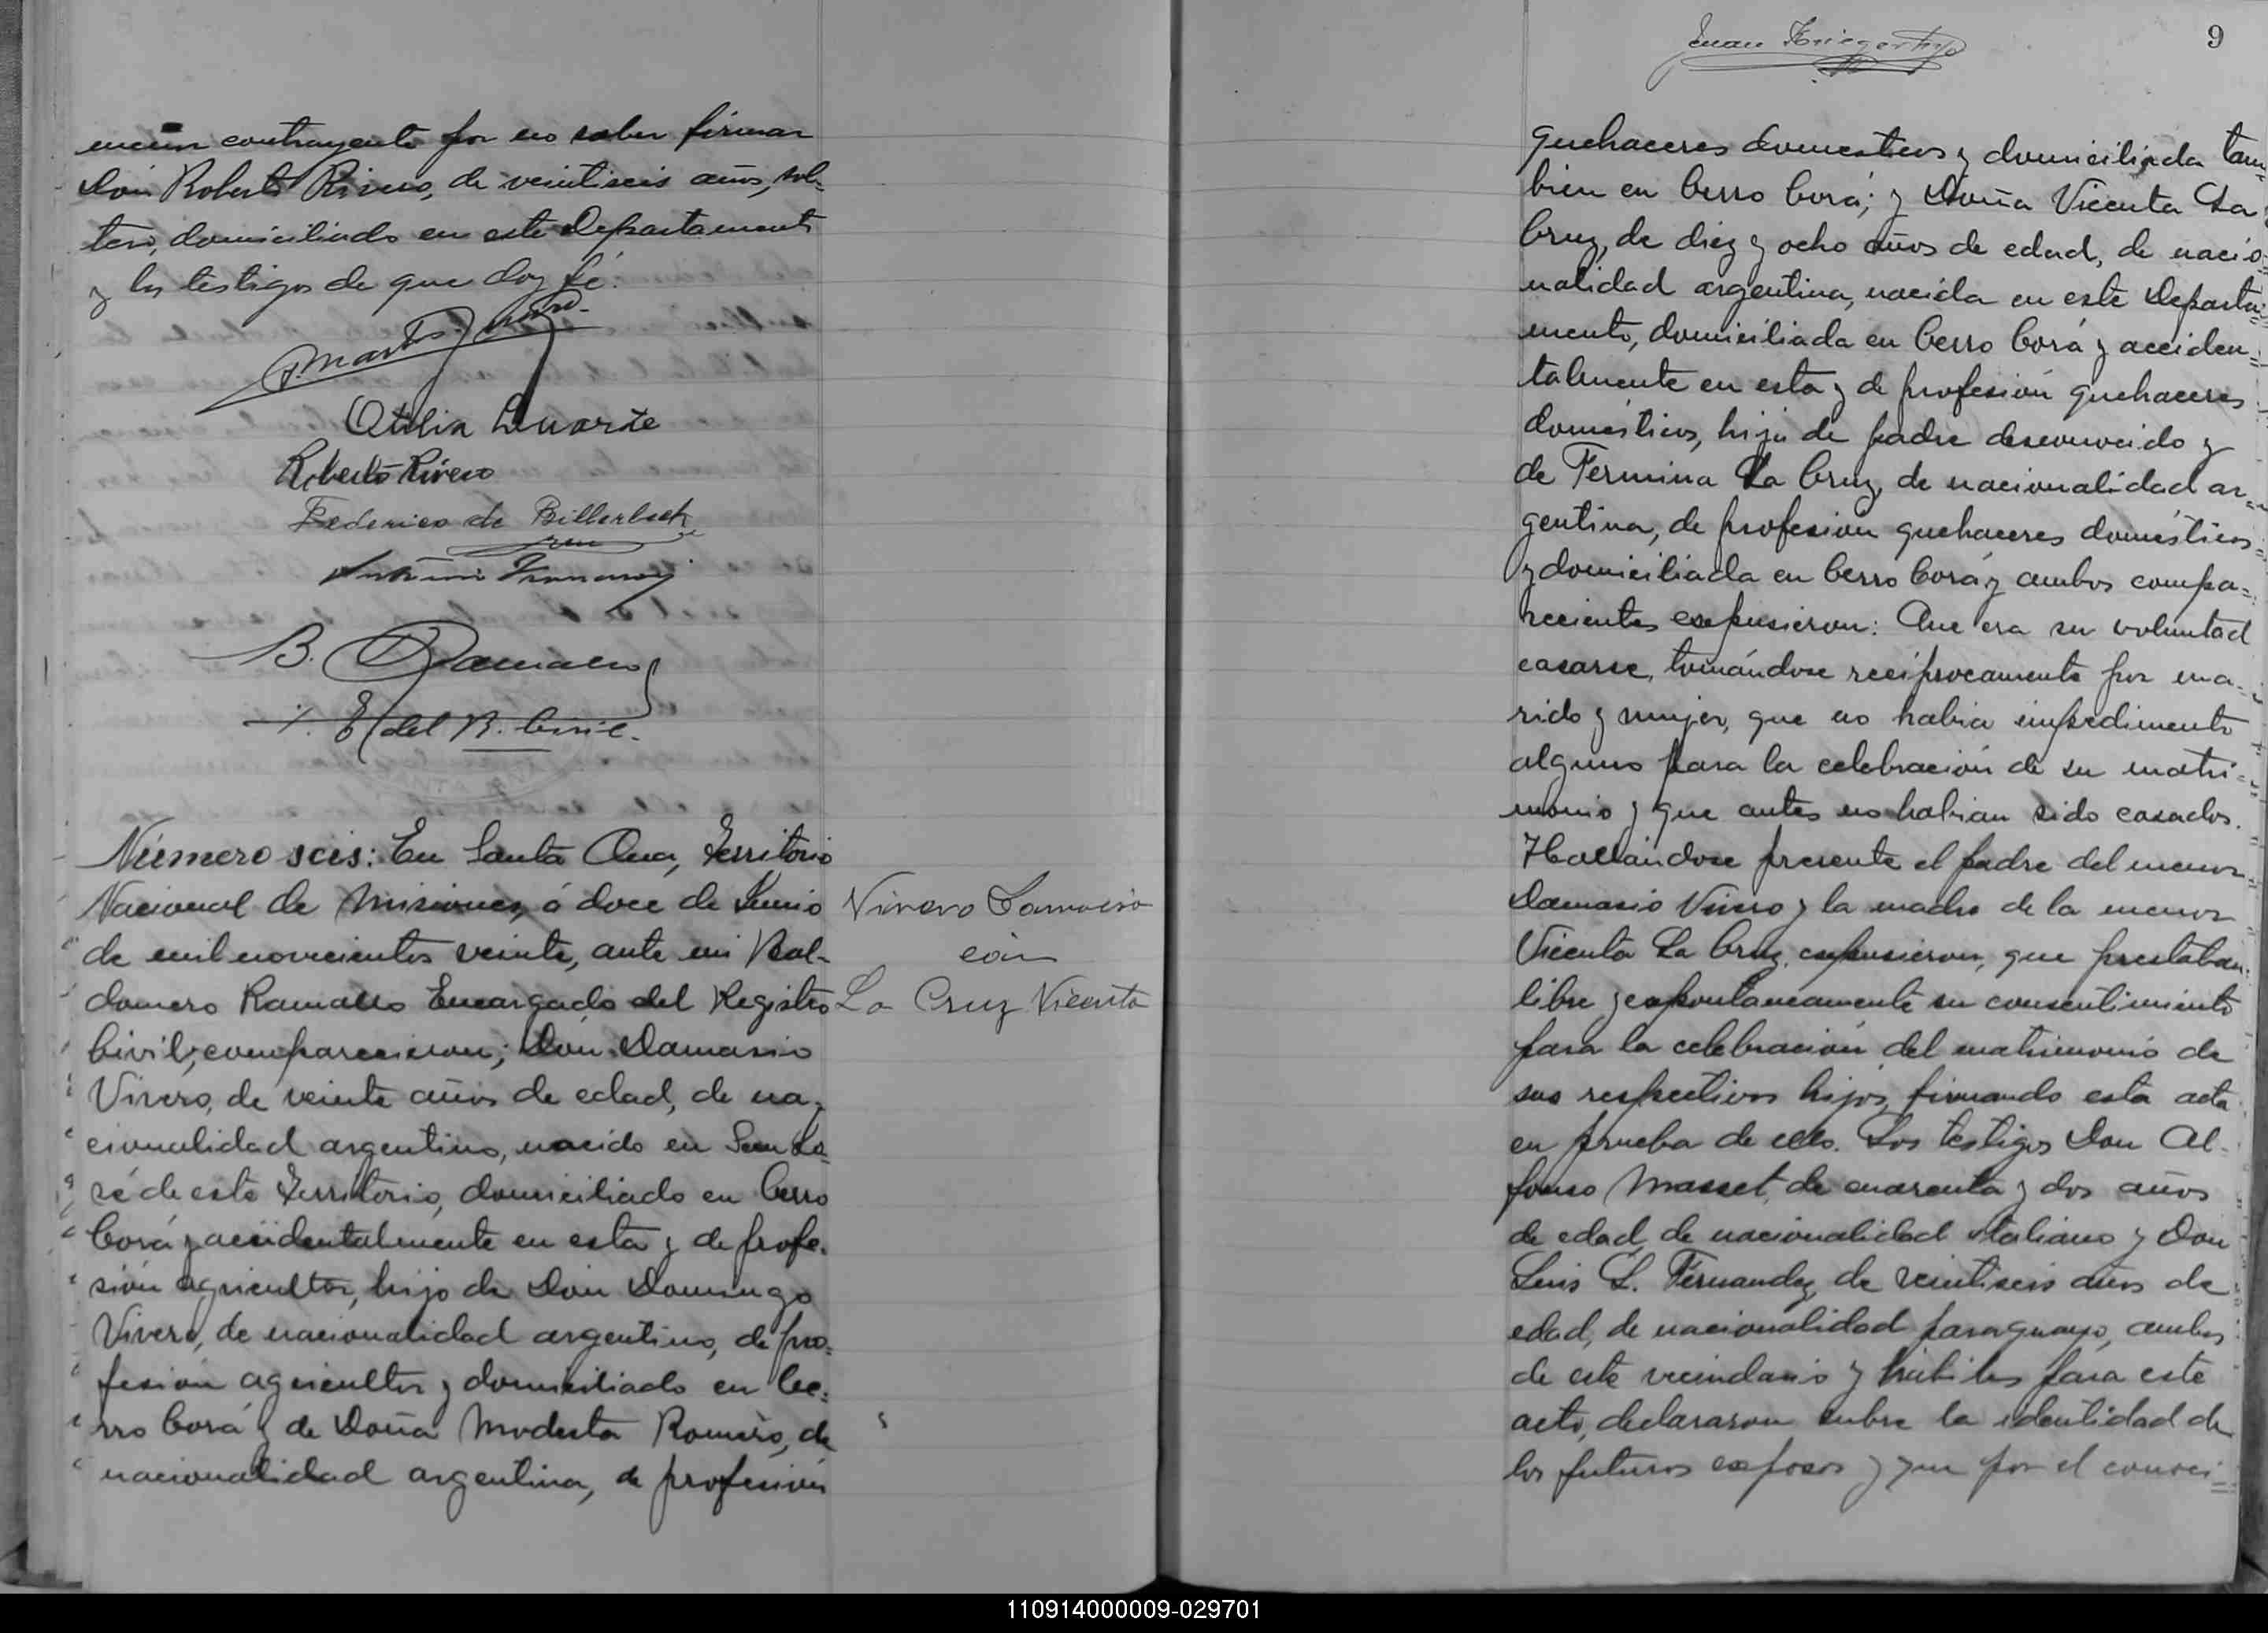 contrayente por no saber firmar
Don Roberto Rivero, de veintiseis años, sol-
tero, domiciliado en este Departamento
y los testigos de que doy fé.
Otilia Duarte
Roberto Rivero
Federico de Billerbeck
B. Ramallo
E. del R. Civil.
Número seis: En Santa Ana, Territorio
Nacional de Misiones, á doce de Junio
de mil novecientos veinte, ante mi Bal-
domero Ramallo Encargado del Registro
Civil, comparecieron; Don Damasio
Vivero, de veinte años de edad, de na-
cionalidad argentino, nacido en San Jo-
sé de este Territorio, domiciliado en Cerro
Corá y accidentalmente en esta y de profe-
sión agricultor, hijo de Don Domingo
Vivero, de nacionalidad argentino, de pro-
fesión agricultor y domiciliado en Ce-
rro Corá y de Doña Modesta Romero, de
nacionalidad argentina, de profesión
Vivero Damacio
con
La Cruz Vicenta
9
quehaceres domesticos y domiciliada tam-
bien en Cerro Corá; y Doña Vicenta La
Cruz, de diez y ocho años de edad, de nacio-
nalidad argentina, nacida en este Departa-
mento, domiciliada en Cerro Corá y acciden-
talmente en esta y de profesión quehaceres
domésticos, hija de padre desconocido y
de Fermina La Cruz, de nacionalidad ar-
gentina, de profesion quehaceres domésticos
y domiciliada en Cerro Corá y ambos compa-
recientes expusieron: Que era su voluntad
casarse, tomándose recíprocamente por ma-
rido y mujer, que no habia impedimento
alguno para la celebración de su matri-
monio y que antes no habian sido casados.
Hallándose presente el padre del menor
Damasio Vivero y la madre de la menor
Vicenta La Cruz, expusieron, que prestaban
libre y espontaneamente su consentimiento
para la celebración del matrimonio de
sus respectivos hijos, firmando esta acta
en prueba de ello. Los testigos Don Al-
fonso Masset, de cuarenta y dos años
de edad, de nacionalidad italiano y Don
Luis L. Fernandez, de veintiseis años de
edad, de nacionalidad paraguayo, ambos
de este vecindario y hábiles para este
acto, declararon sobre la identidad de
los futuros esposos y que por el conoci-
110914000009-029701